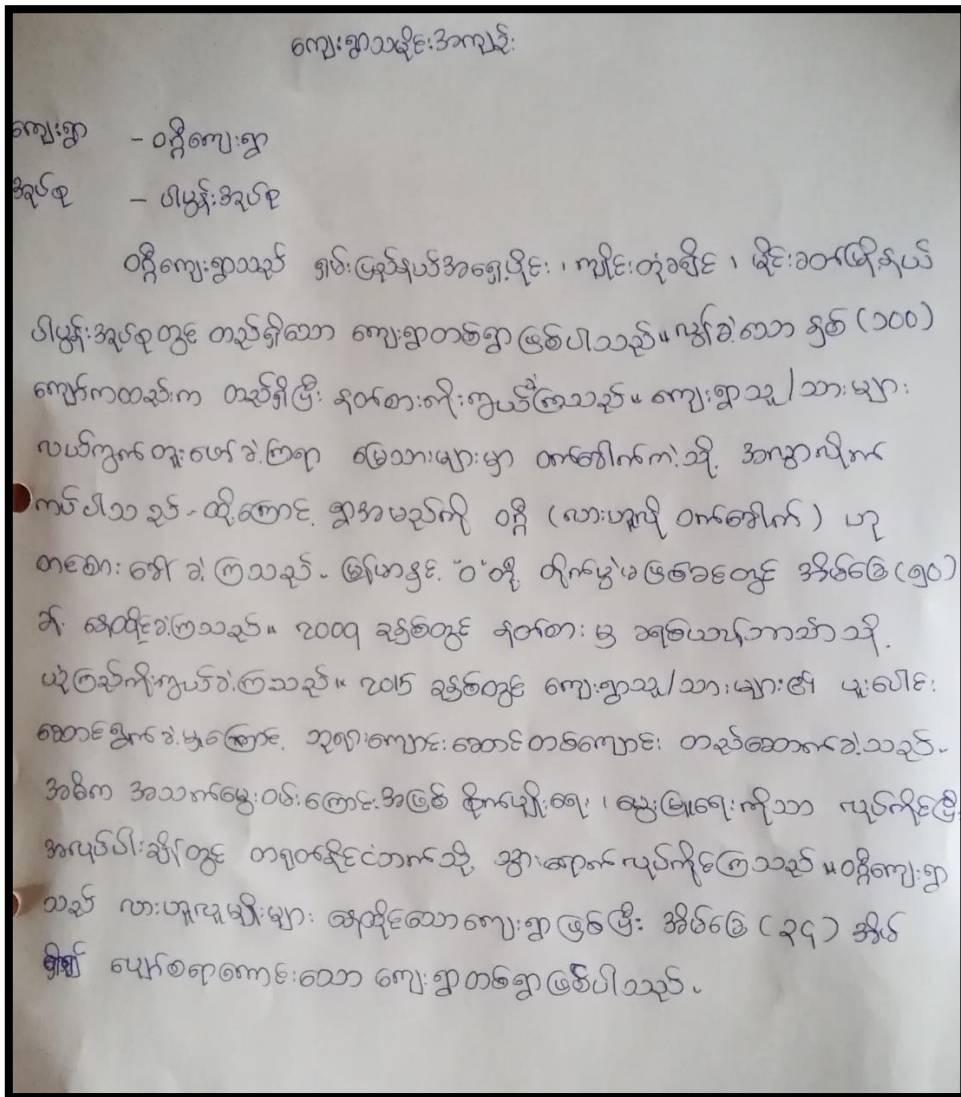 ကျေးရွာသမိုင်းအကျဉ်း
ကျေးရွာ - ဝဂ္ဂီကျေးရွာ
အုပ်စု - ပါမွန်းအုပ်စု
ဝဂ္ဂီကျေးရွာသည် ရှမ်းပြည်နယ်အရှေ့ပိုင်း ၊ ကျိုင်းတုံခရိုင် ၊ မိုင်းခတ်မြို့နယ်
ပါမွန်းအုပ်စုတွင် တည်ရှိသော ကျေးရွာတစ်ရွာဖြစ်ပါသည်။ လွန်ခဲ့သော နှစ် (၁၀၀)
ကျော်ကတည်းက တည်ရှိပြီး နတ်စားကိုးကွယ်ကြသည်။ ကျေးရွာသူ/သားများ
လယ်ကွက်တူးဖော်ခဲ့ကြရာ မြေသားများမှာ ဝက်ခေါက်ကဲ့သို့ အလွှာလိုက်
ကပ်ပါသည်။ ထို့ကြောင့် ရွာအမည်ကို ဝဂ္ဂီ (လားဟူလို ဝက်ခေါက်) ဟု
တင်စားခေါ်ခဲ့ကြသည်။ မြန်မာနှင့် "ဝ"တို့ တိုက်ပွဲမဖြစ်ခင်တွင် အိမ်ခြေ(၅၀)
ခန့် နေထိုင်ခဲ့ကြသည်။ ၂၀၀၅ ခုနှစ်တွင် နတ်စားမှ ခရစ်ယာန်ဘာသာသို့
ယုံကြည်ကိုးကွယ်ခဲ့ကြသည်။ ၂၀15 ခုနှစ်တွင် ကျေးရွာသူ/သားများ၏ ပူးပေါင်း
ဆောင်ရွက်ခဲ့မှုကြောင့် ဘုရားကျောင်းဆောင်တစ်ကျောင်း တည်ဆောက်ခဲ့သည်။
အဓိက အသက်မွေးဝမ်းကြောင်းအဖြစ် စိုက်ပျိုးရေး ၊ မွေးမြူရေးကိုသာ လုပ်ကိုင်ပြီး
အလုပ်ပါးချိန်တွင် တရုတ်နိုင်ငံဘက်သို့ သွားရောက်လုပ်ကိုင်ကြသည်။ ဝဂ္ဂီကျေးရွာ
သည် လားဟူလူမျိုးများ နေထိုင်သောကျေးရွာဖြစ်ပြီး အိမ်ခြေ (၃၄) အိမ်
ပျော်စရာကောင်းသော ကျေးရွာတစ်ရွာဖြစ်ပါသည်။